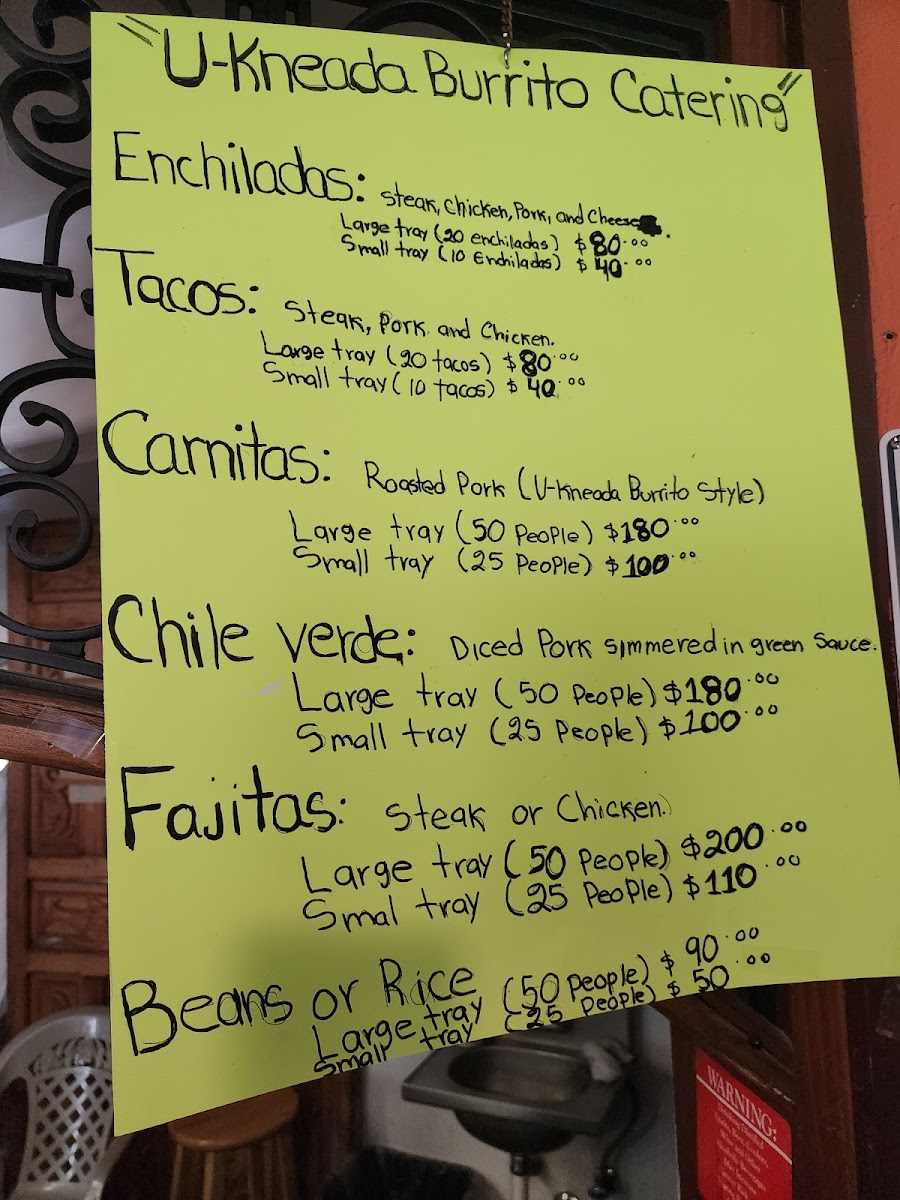 "U-Kneada Burrito Catering"
Enchiladas: steak, chicken, Pork, and Cheese.
Large tray (20 enchiladas) $80.00
Small tray (10 Enchiladas) $40.00
Tacos: Steak, Pork and Chicken.
Large tray (20 tacos) $80.00
Small tray (10 tacos) $40.00
Carnitas: Roasted Pork (U-Kneada Burrito Style)
Large tray (50 People) $180.00
Small tray (25 People) $100.00
Chile verde: Diced Pork simmered in green Sauce.
Large tray (50 People) $180.00
Small tray (25 People) $100.00
Fajitas: Steak or Chicken.
Large tray (50 People) $200.00
Smal tray (25 People) $110.00
Beans or Rice
Large tray (50 People) $90.00
Small tray (25 People) $50.00
WARNING: